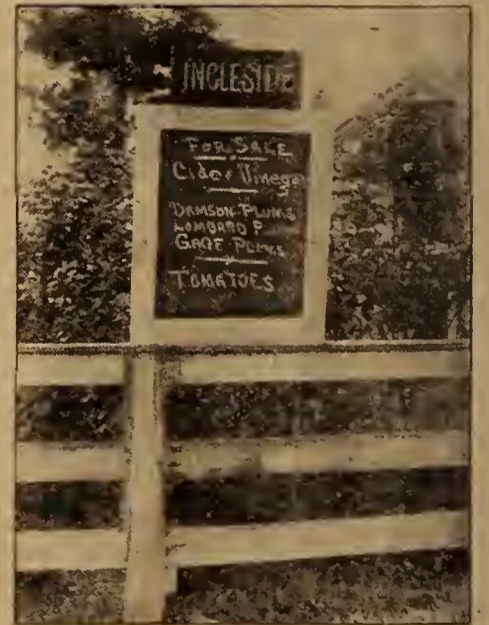 INGLESIDE
FOR SALE
Cider Vinegar
DAMSON PLUMS
LOMBARD P
GAGE PLUMS
TOMATOES